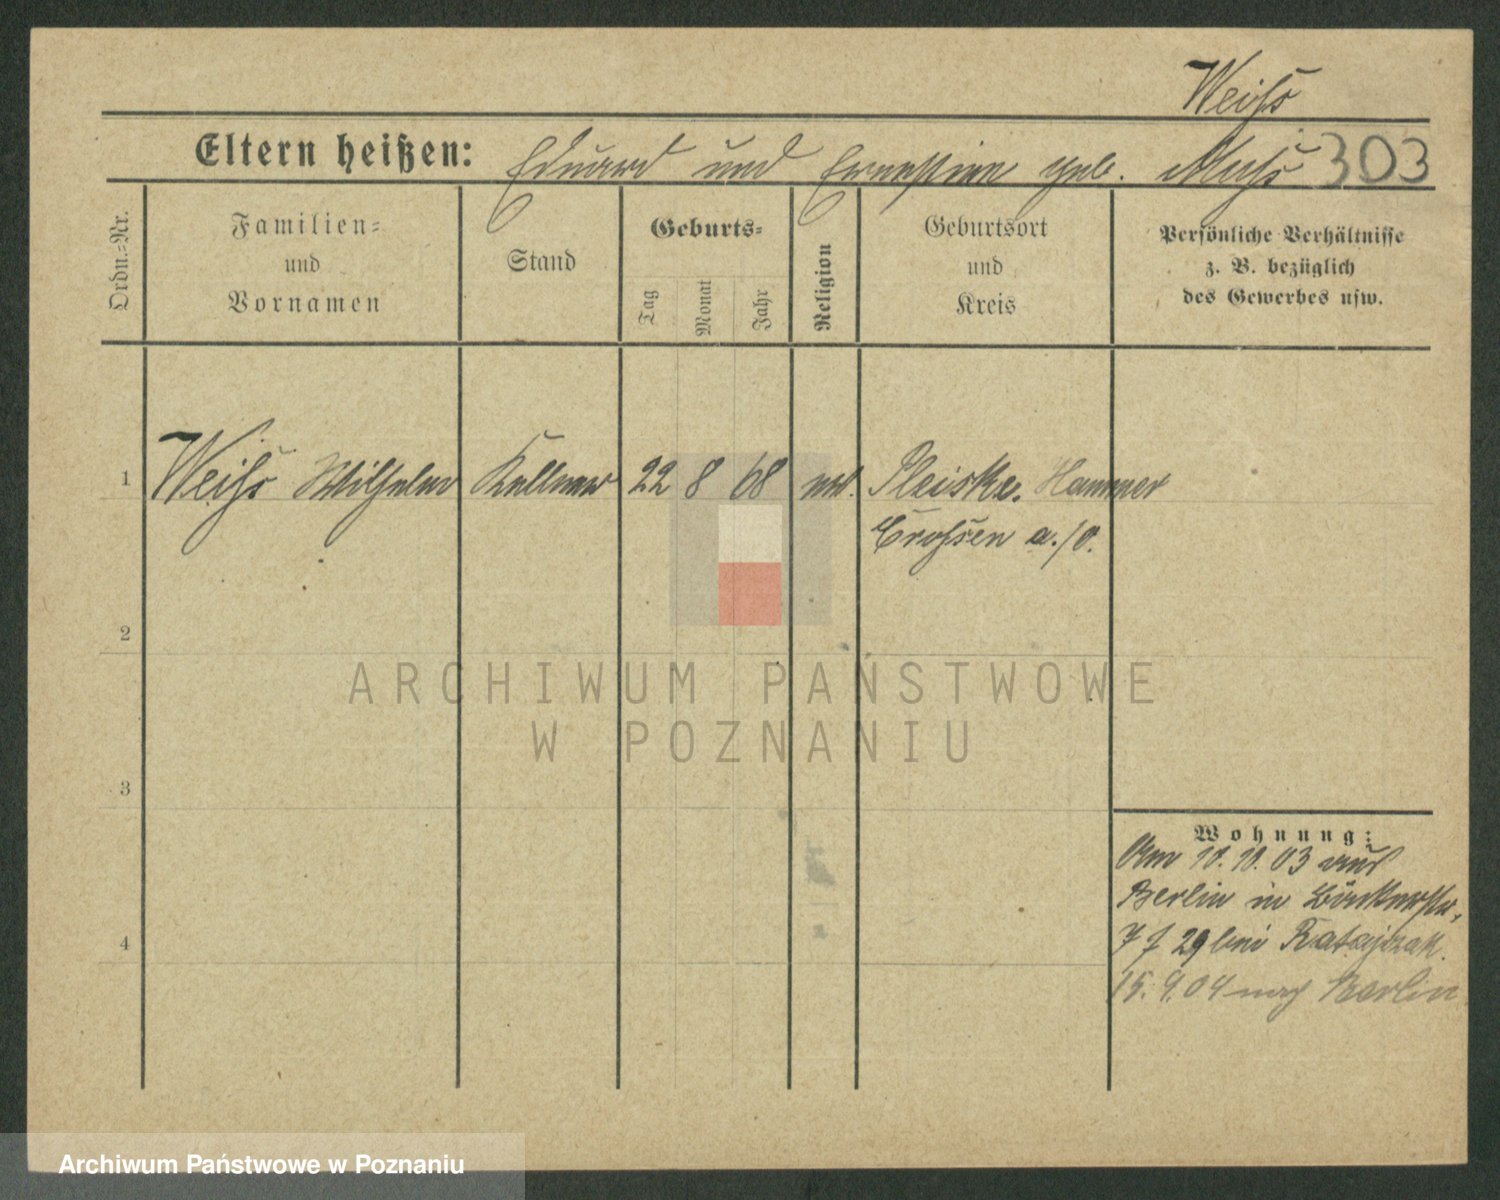 Weiß
Eltern heißen: Eduard und Ernestine geb. Muß 303
Ordn.-Nr.
Familien-
und
Vornamen
Stand
Geburts-
Tag
Monat
Jahr
Religion
Geburtsort
und
Kreis
Persönliche Verhältnisse
z. B. bezüglich
des Gewerbes usw.
1 Weiß Wilhelm Kellner 22 8 68 ev. Pleiske. Hammer
Croßen a./O.
2
3
4
Wohnung:
Am 10. 10. 03 aus
Berlin in
29 bei Ratajczak.
15. 9. 04 nach Berlin
ARCHIWUM PAŃSTWOWE
W POZNANIU
Archiwum Państwowe w Poznaniu